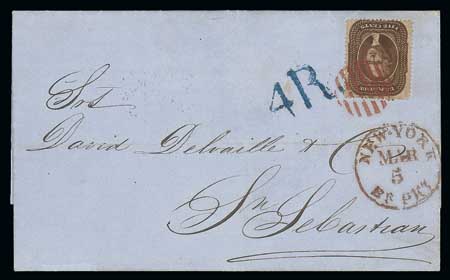 4R
Srs
David Delvaille &
Sn Sebastian
NEW YORK
MAR
5
BR. PKT